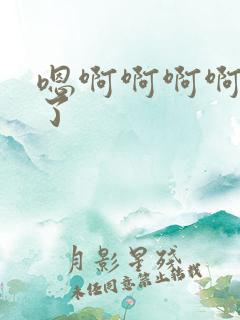 嗯啊啊啊啊
了
月影星残
未经同意禁止转载